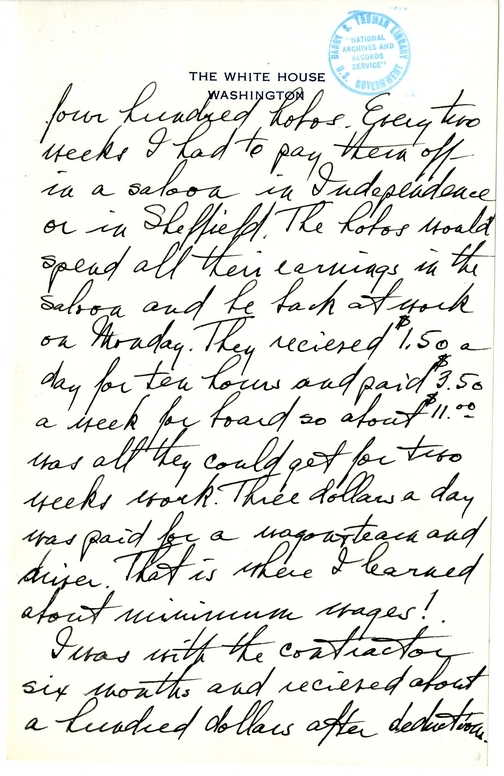 HARRY S. TRUMAN LIBRARY
"NATIONAL
ARCHIVES AND
RECORDS
SERVICE"
U.S. GOVERNMENT
THE WHITE HOUSE
WASHINGTON
four hundred hobos. Every two
weeks I had to pay them off
in a saloon in Independence
or in Sheffield. The hobos would
spend all their earnings in the
saloon and be back at work
on Monday. They recieved $1.50 a
day for ten hours and paid $3.50
a week for board so about $11.00
was all they could get for two
weeks work. Three dollars a day
was paid for a wagon, team and
driver. That is where I learned
about minimum wages!
I was with the contractor
six months and recieved about
a hundred dollars after deductions.